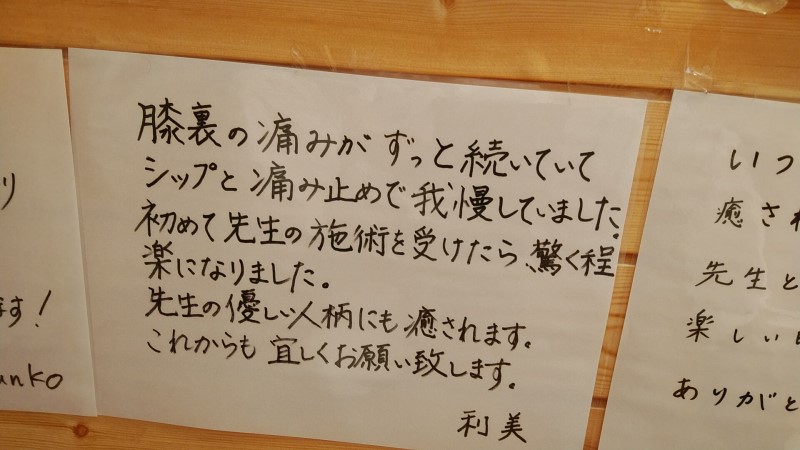 り
ます！
unko
膝裏の痛みが ずっと続いていて
シップと痛み止めで我慢していました。
初めて先生の施術を受けたら、驚く程
楽になりました。
先生の優しい人柄にも癒されます。
これからも宜しくお願い致します。
利美
いつ
癒され
先生と
楽しい
ありがと